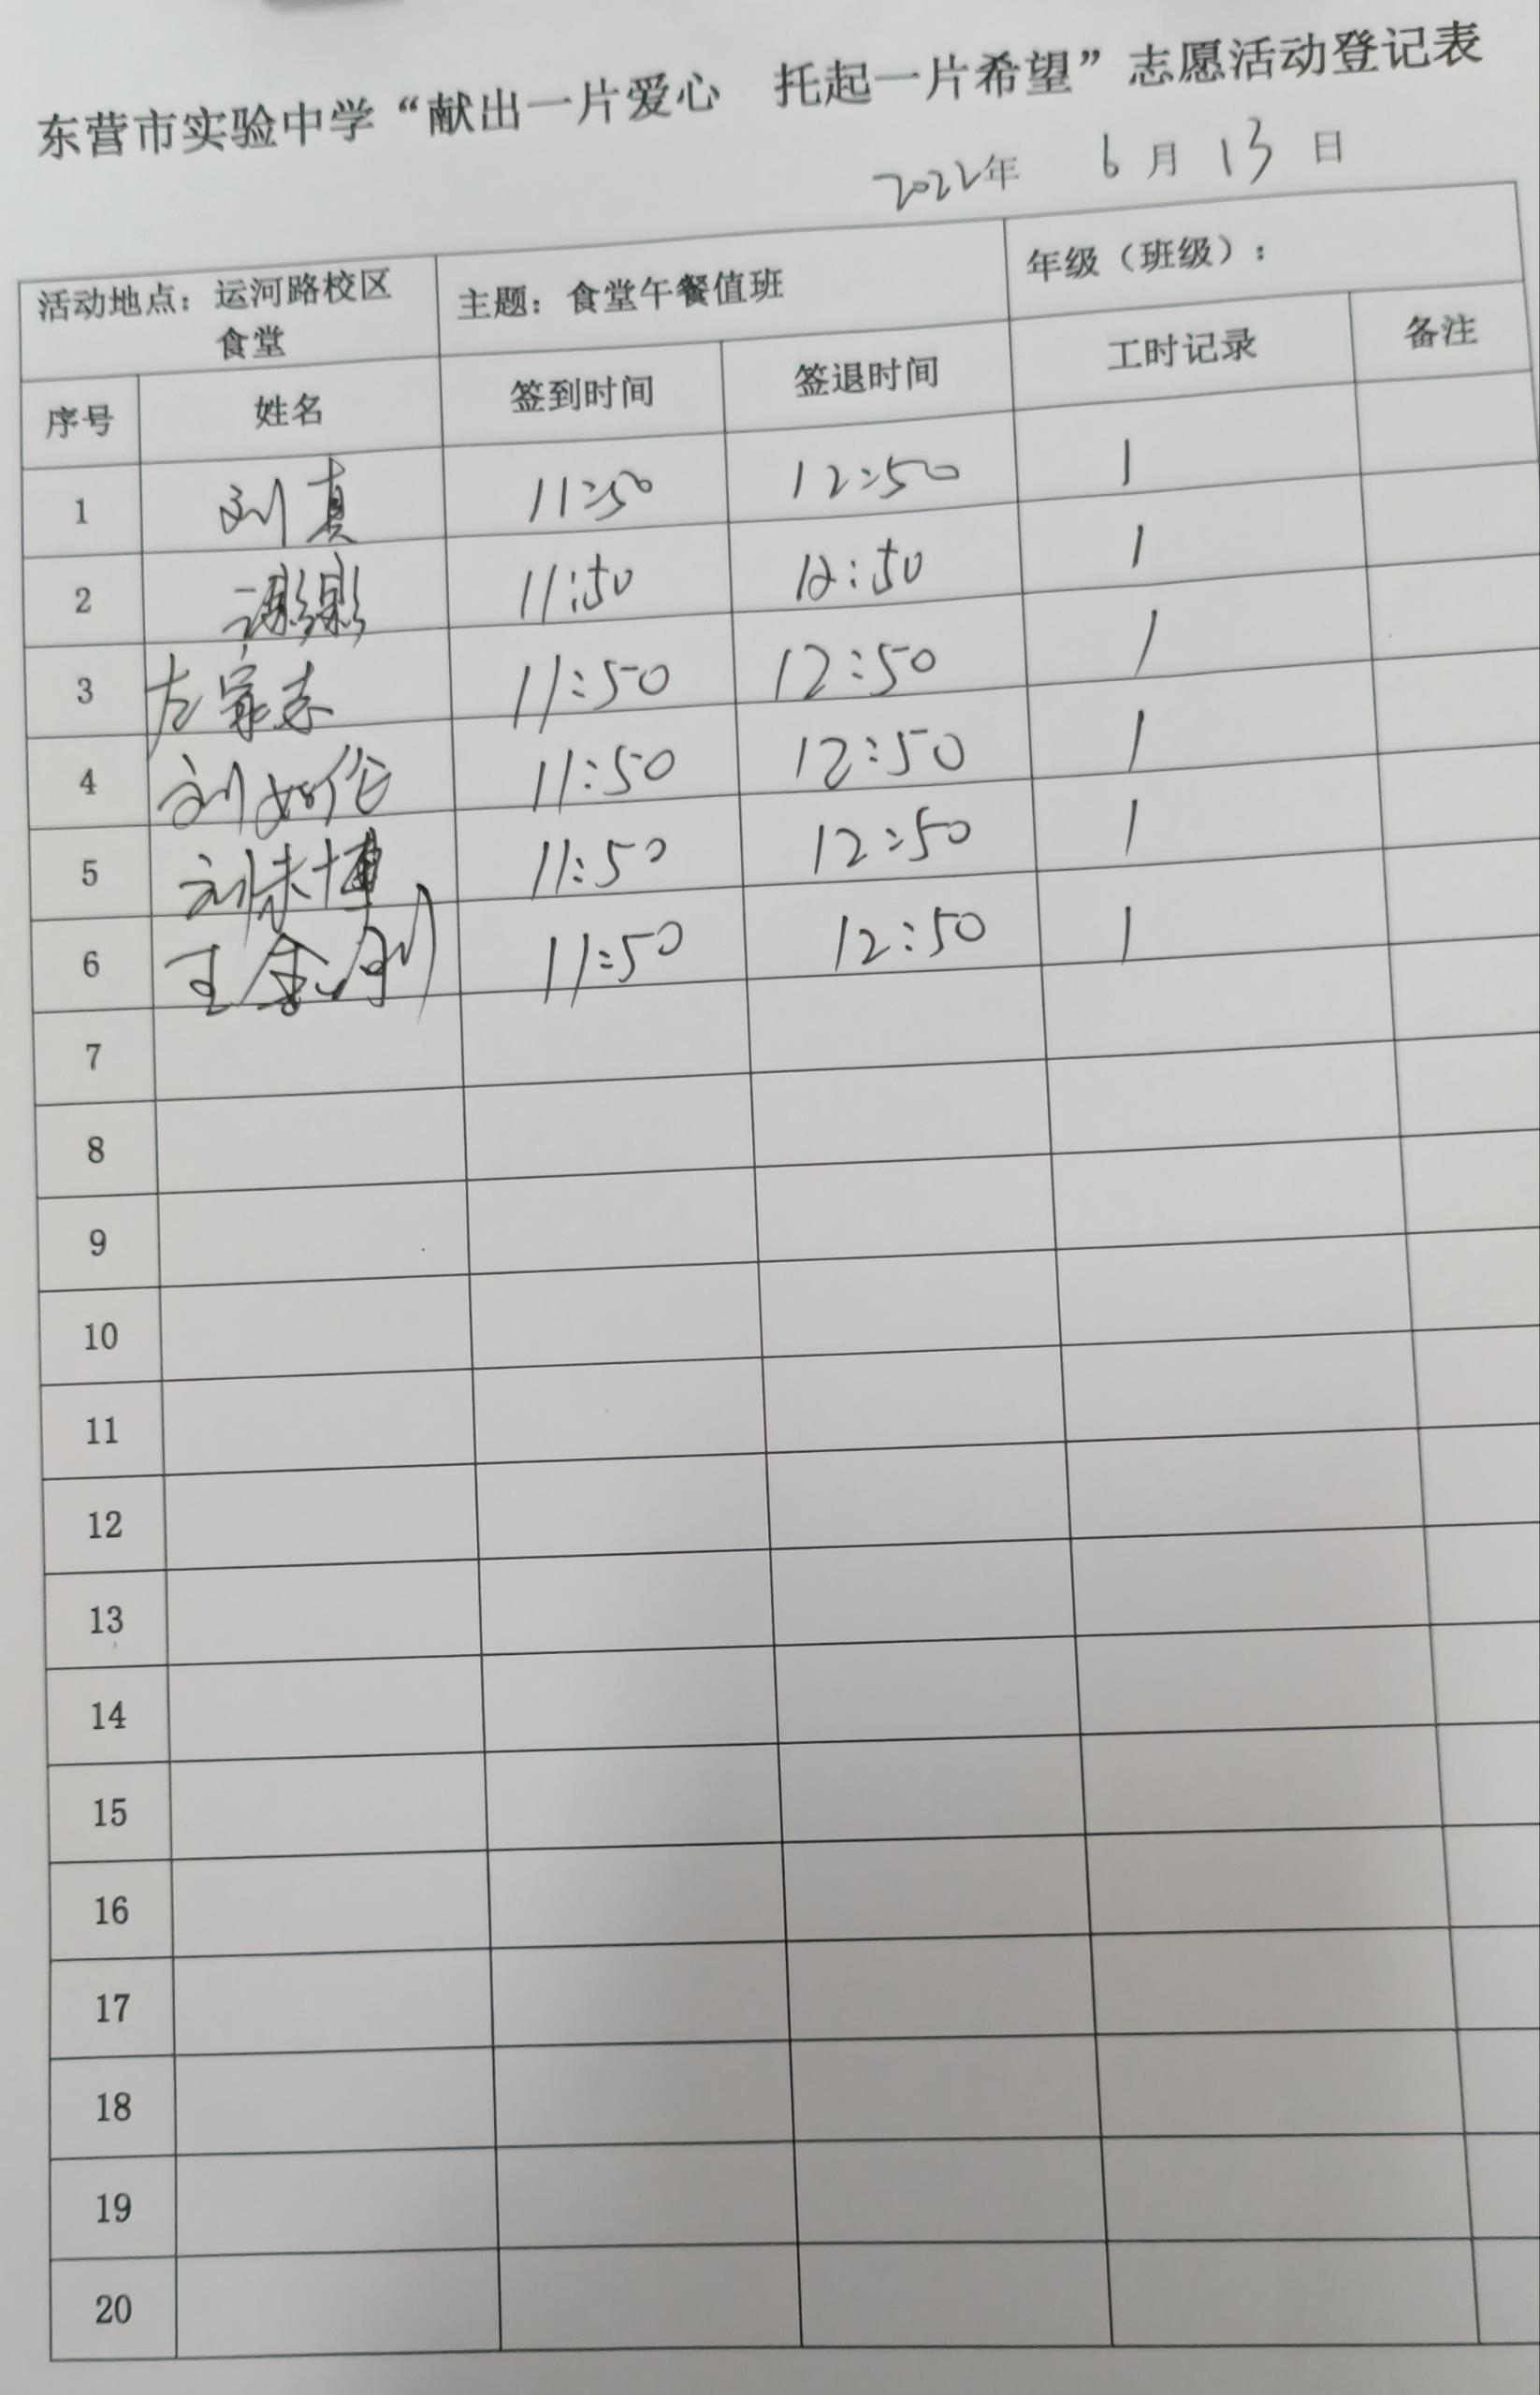 东营市实验中学“献出一片爱心 托起一片希望”志愿活动登记表
2022年 6月 13日
活动地点：运河路校区 主题：食堂午餐值班 年级（班级）：
食堂
序号 姓名 签到时间 签退时间 工时记录 备注
1 刘真 11:50 12:50 1
2 11:50 12:50 1
3 11:50 12:50 1
4 刘如伦 11:50 12:50 1
5 刘 博 11:50 12:50 1
6 王金刚 11:50 12:50 1
7
8
9
10
11
12
13
14
15
16
17
18
19
20